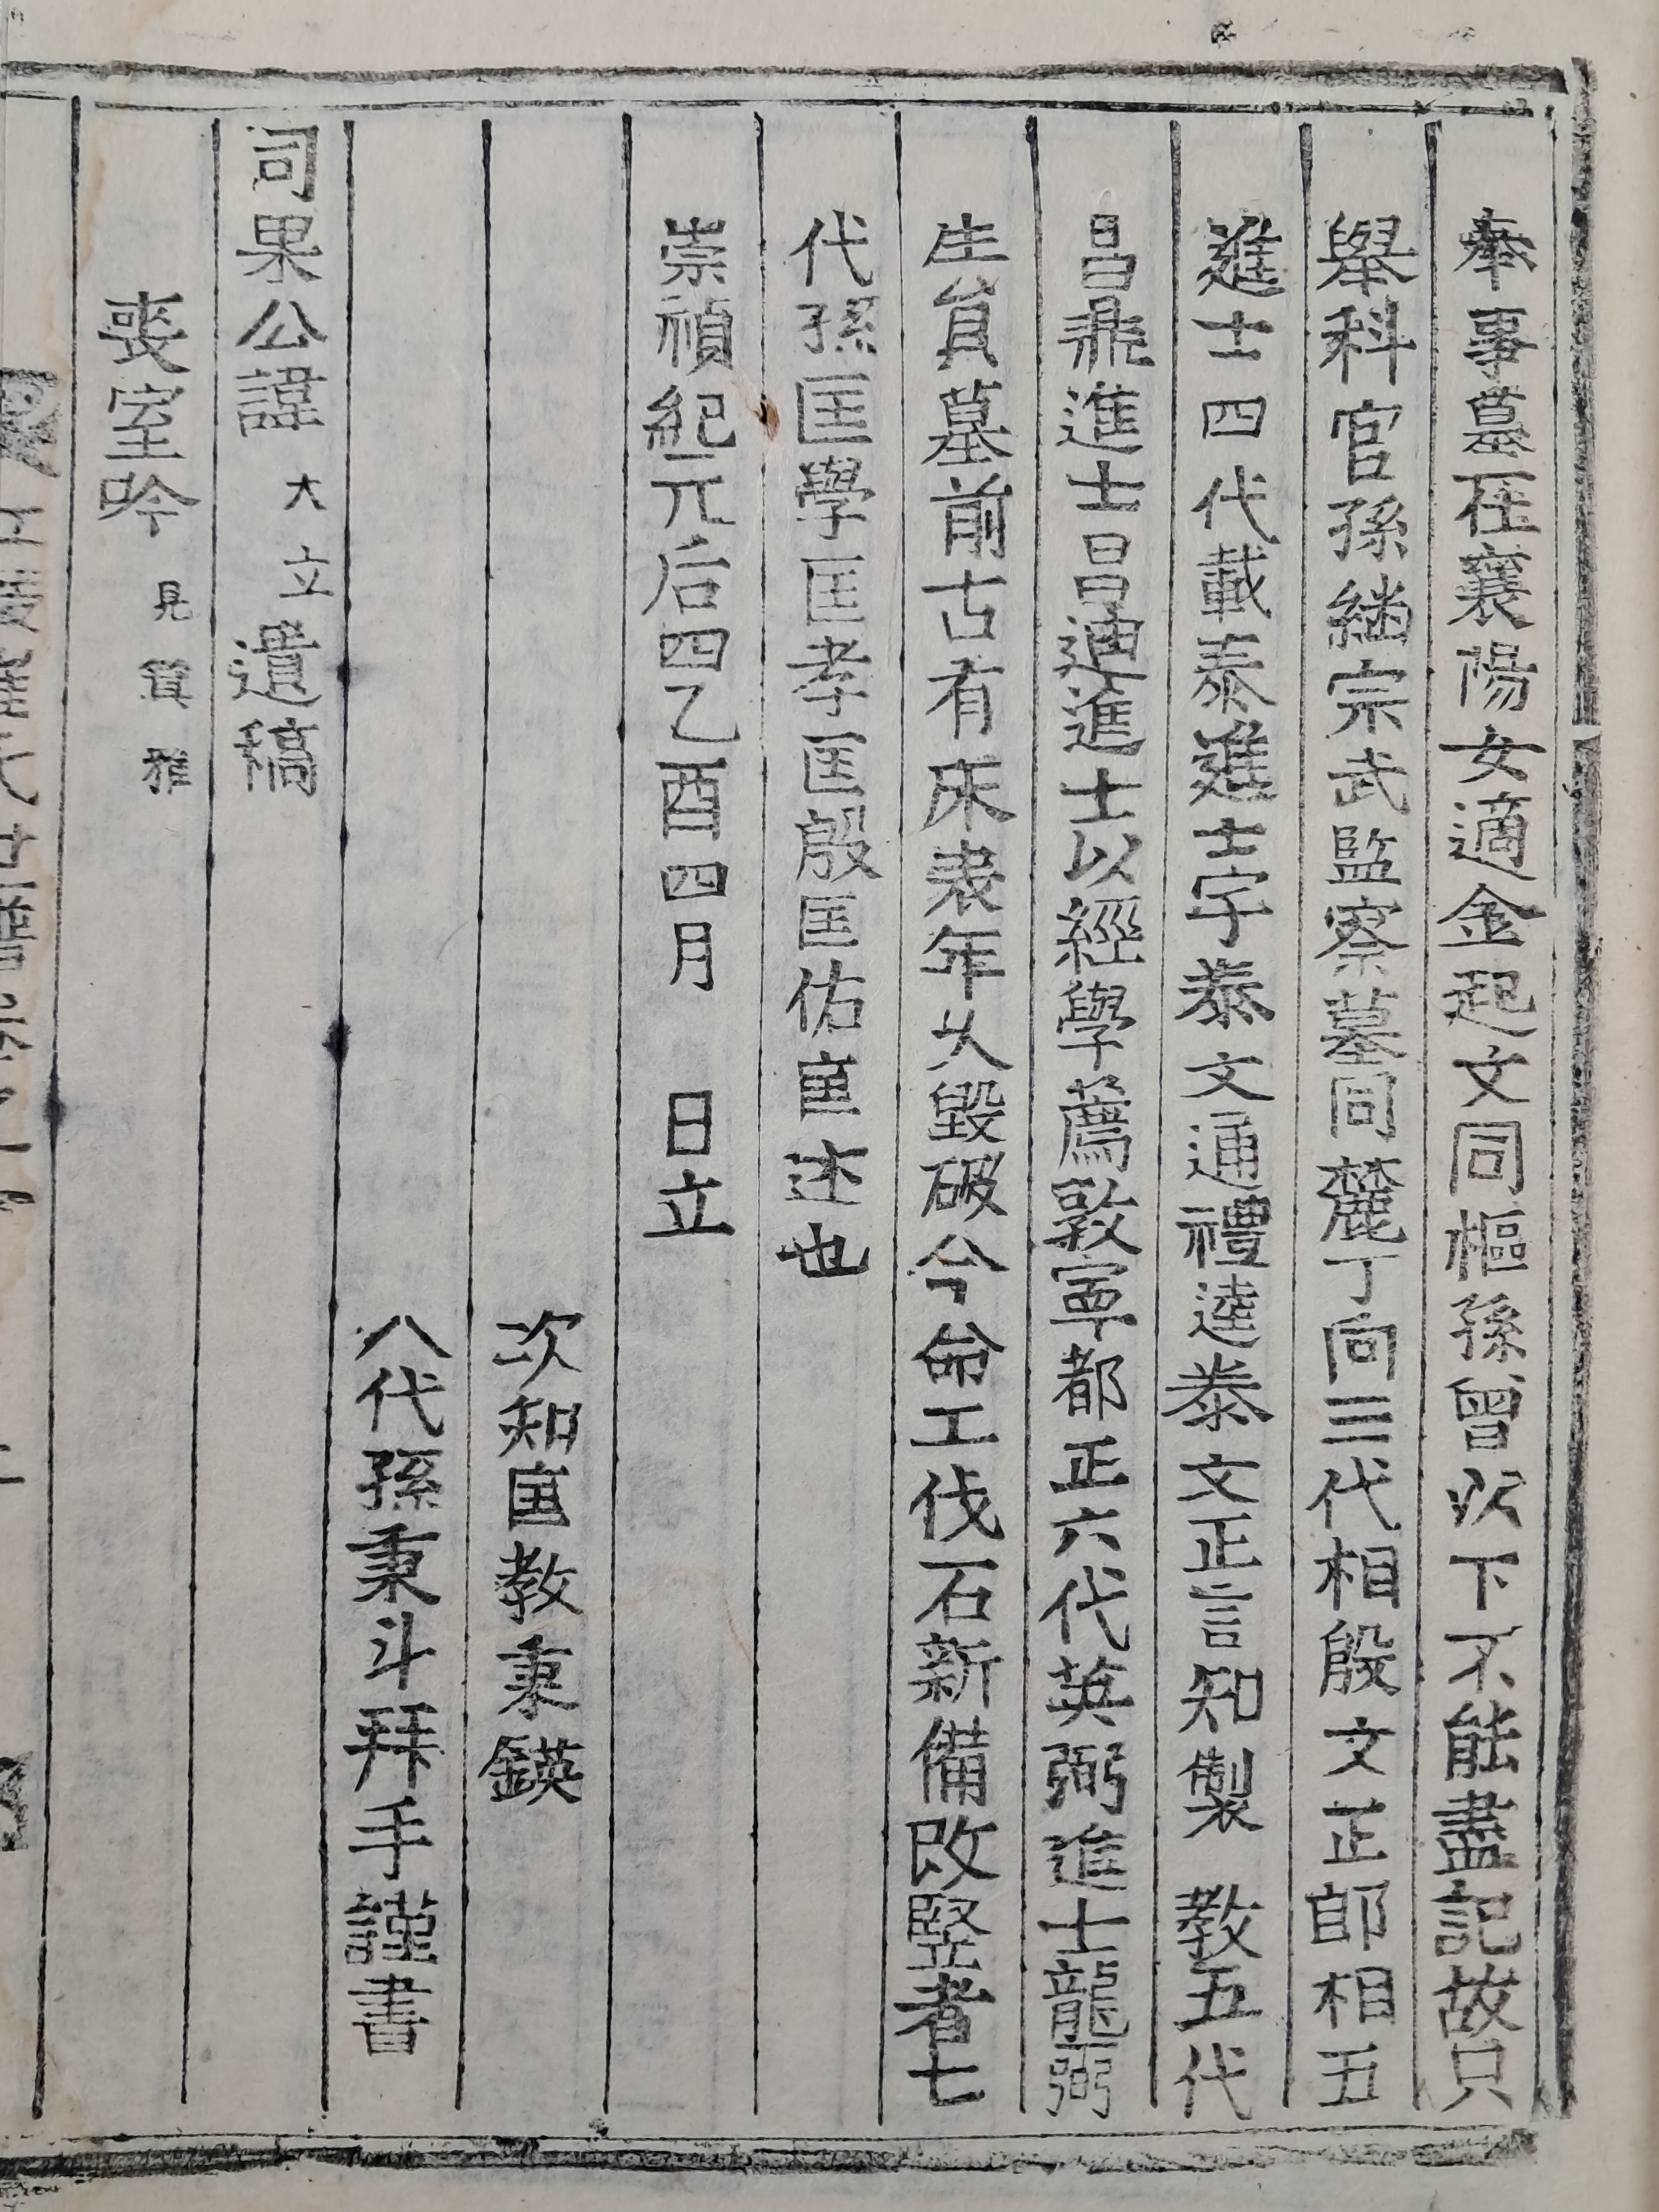 奉事墓在襄陽女適金起文同樞孫曾以下不能盡記故只
擧科官孫緬宗武監察墓同麓丁向三代相殷文正郎相五
進士四代載泰進士宇泰文通禮達泰文正言知製 教五代
昌鼎進士昌迪進士以經學薦敦寧都正六代英弼進士龍弼
生員墓前古有床表年久毀破今命工伐石新備改竪者七
代孫匡學匡孝匡殷匡佑匡述也
崇禎紀元后四乙酉四月 日立
次知匡敎秉鍈
八代孫秉斗拜手謹書
司果公諱大立遺稿
喪室吟 見箕雅